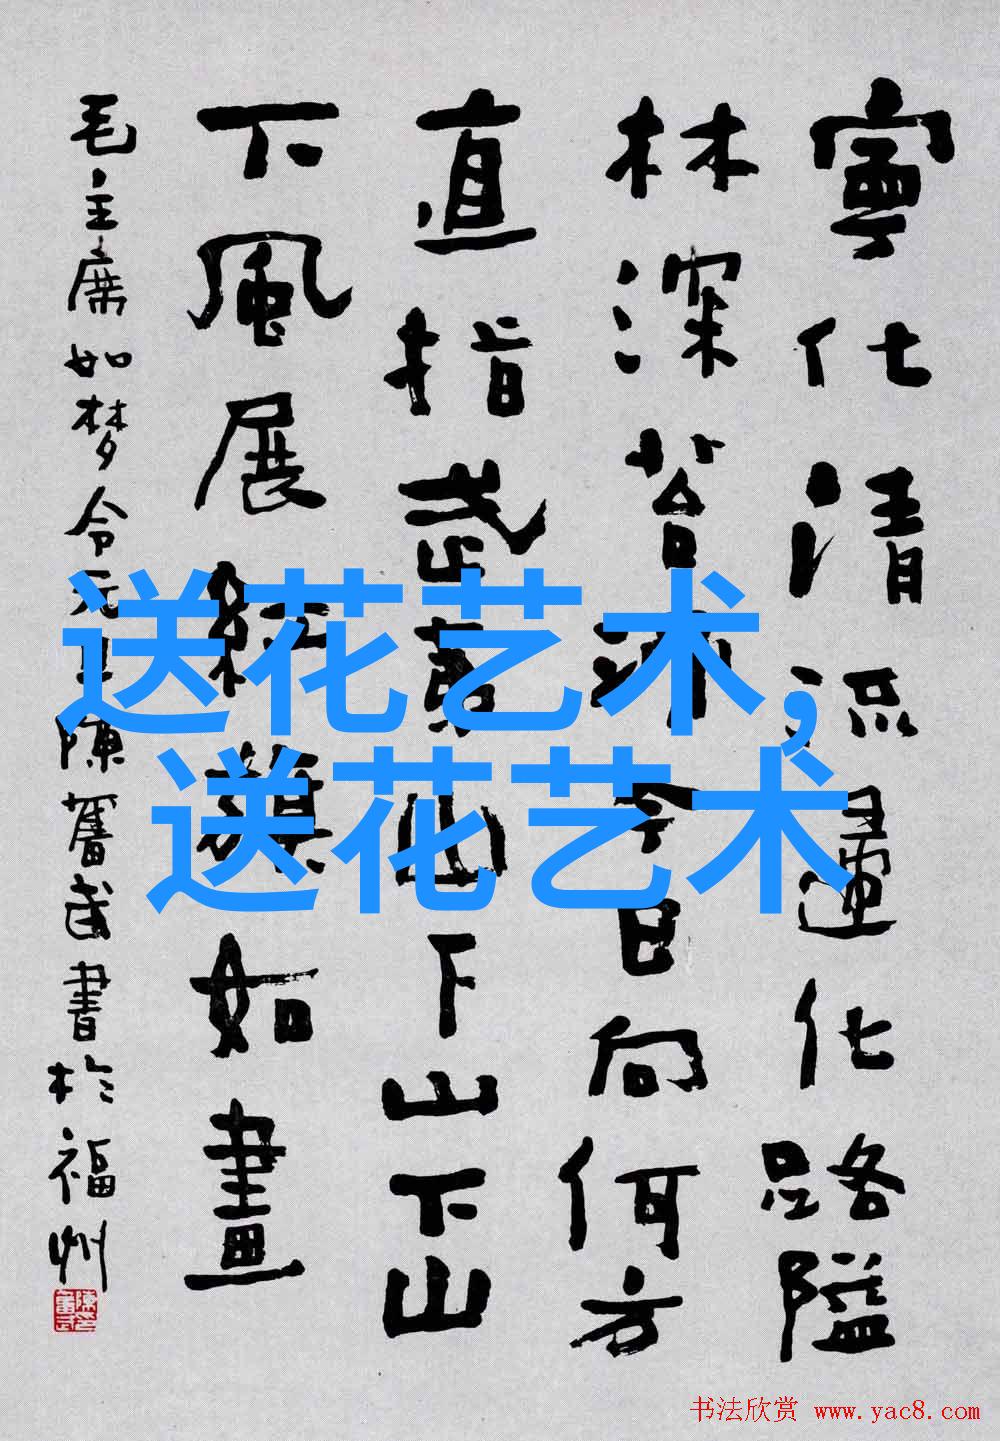 寧化清流歸化路隘
林深苔滑今日向何方
直指武夷山下山下山
下風展紅旗如畫
毛主席如梦令元旦陳奮武書於福州
送花艺术,
送花艺术
书法欣赏 www.yac8.com